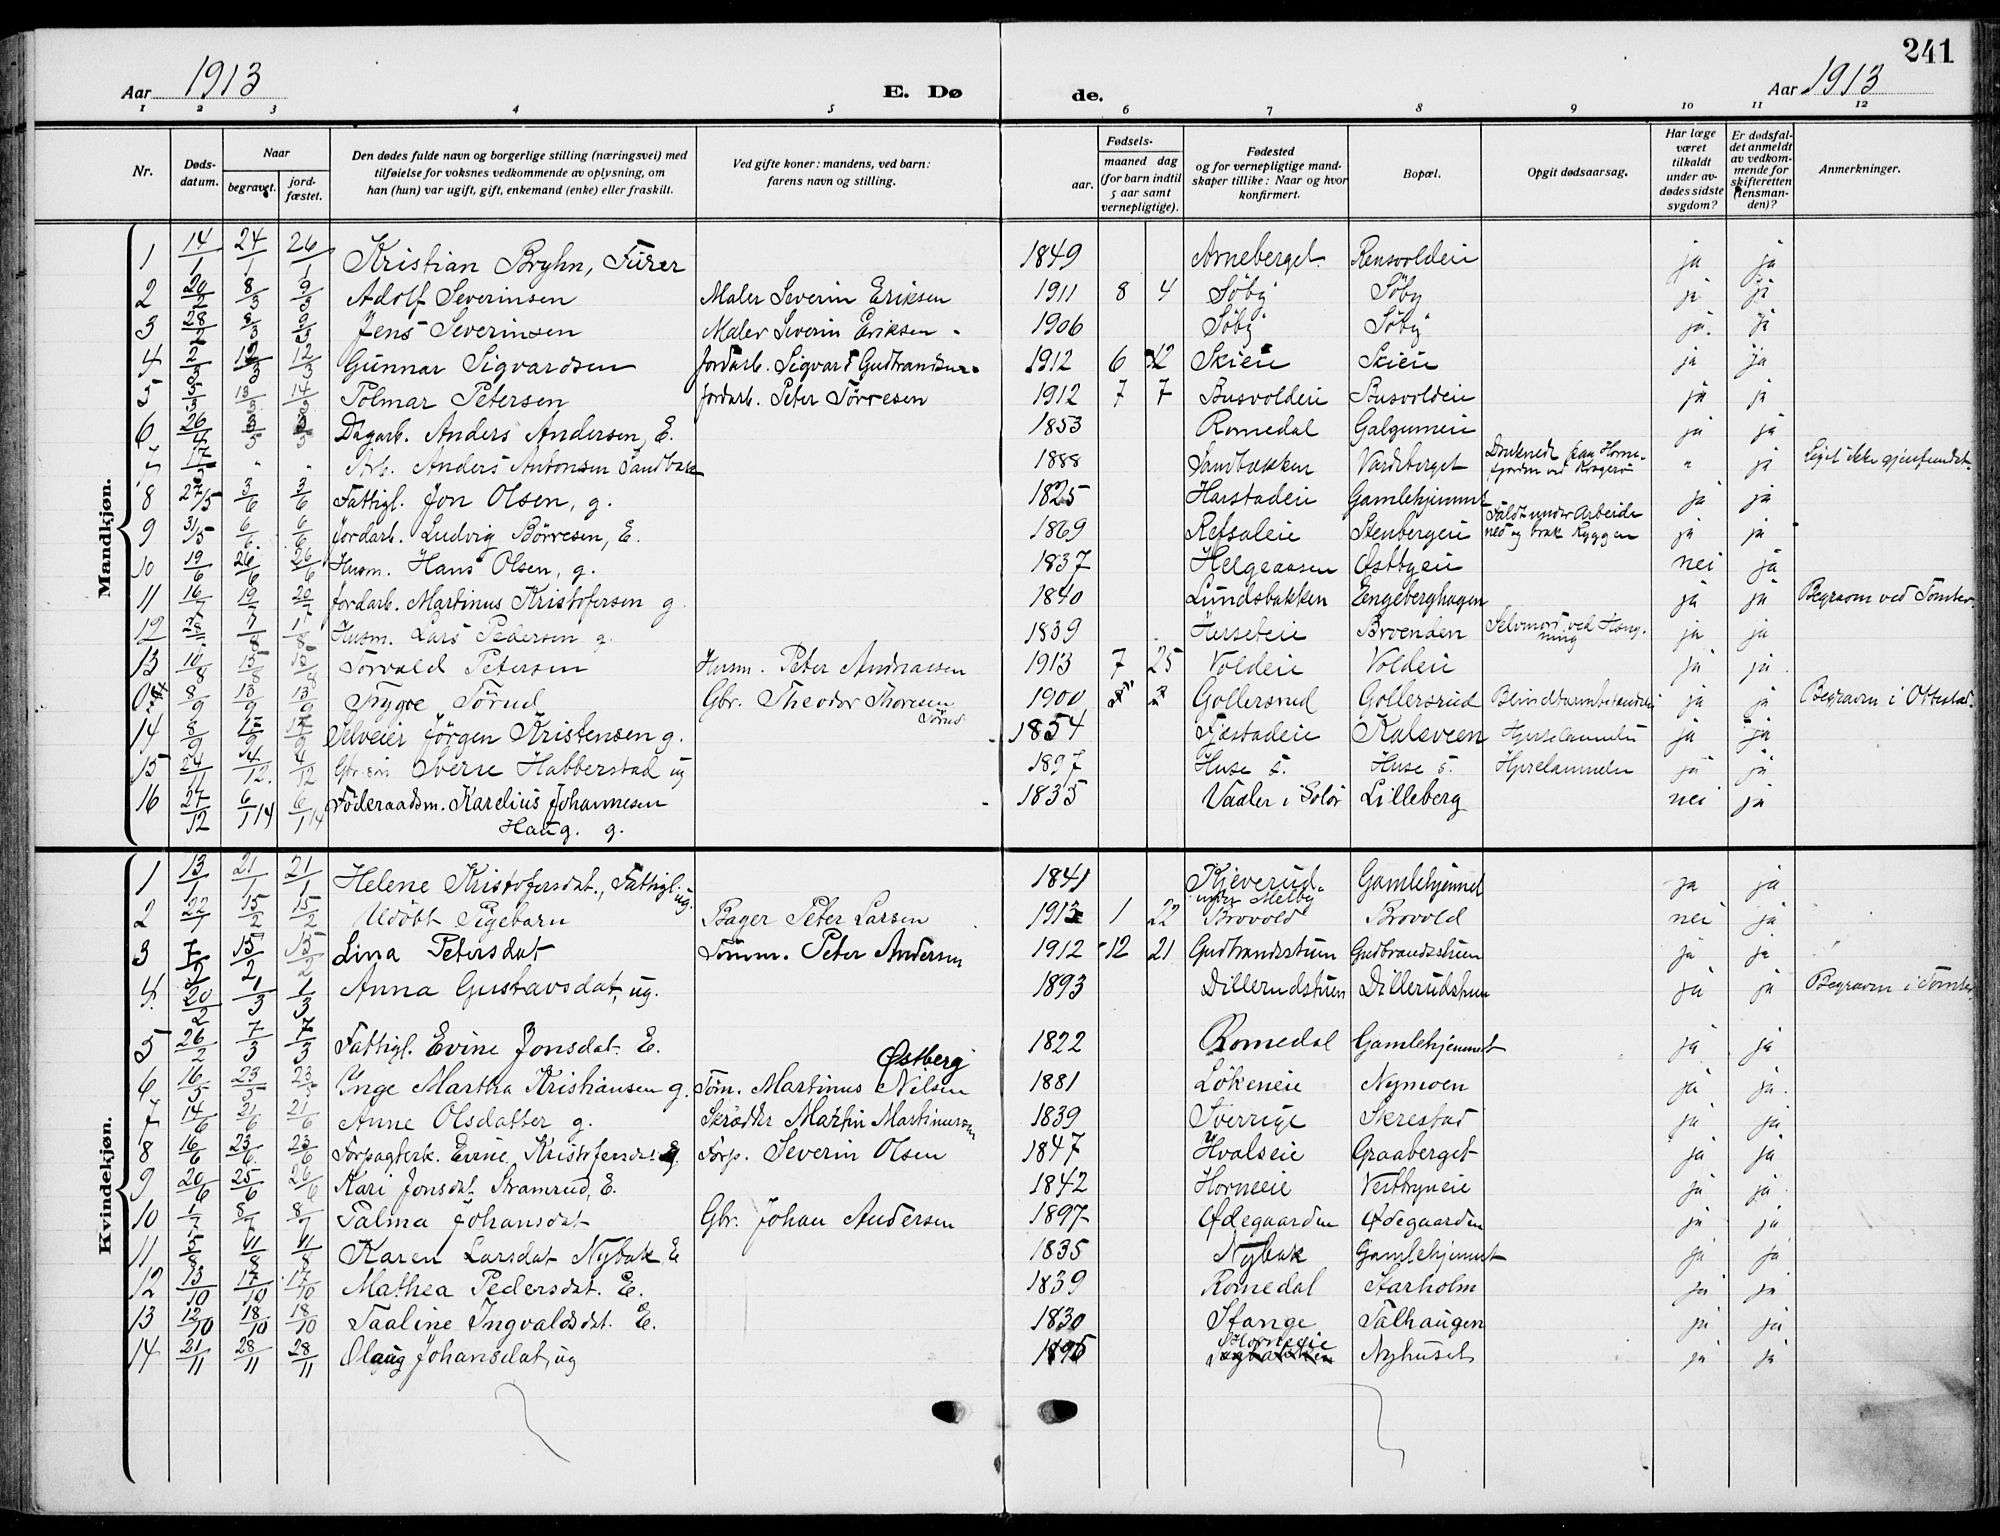 241
Aar 1913 E. Dø de. Aar 1913
1 2 3 4 5 6 7 8 9 10 11 12
Nr. Døds-datum. Naar begravet. jord-fæstet. Den dødes fulde navn og borgerlige stilling (næringsvei) med tilføielse for voksnes vedkommende av oplysning, om han (hun) var ugift, gift, enkemand (enke) eller fraskilt. Ved gifte koner: mandens, ved barn: farens navn og stilling. Fødsels- aar. maaned dag (for barn indtil 5 aar samt vernepligtige). Fødested og for vernepligtige mand-skaper tillike: Naar og hvor konfirmert. Bopæl. Opgit dødsaarsag. Har læge været tilkaldt under av-dødes sidste sygdom? Er dødsfal-det anmeldt av vedkom-mende for skifteretten (lensman-den)? Anmerkninger.
Mandkjøn.
1 14/1 24/1 26/1 Kristian Bryhn, Furer 1849 Arneberget Rensvoldeie ja ja
2 20/2 8/3 9/3 Adolf Severinsen Maler Severin Eriksen 1911 8 4 Söby Söby ja ja
3 28/2 8/3 9/3 Jens Severinsen Maler Severin Eriksen 1906 Söby Söby ja ja
4 2/3 12/3 12/3 Gunnar Sigvardsen Jordarb. Sigvard Gudbrandsen 1912 6 Skieie Skieie ja ja
5 5/3 13/3 14/3 Tolmar Petersen Jordarb. Peter Törresen 1912 7 7 Busvoldeie Busvoldeie ja ja
6 26/4 3/5 3/5 Dagarb. Anders Andersen, E. 1853 Romedal Galgumeie ja ja
7 Arb. Anders Antonsen Sandbak 1888 Sandbakken Vardeberget Druknede paa Horne-fjorden ved Kragerö " ja Liget ikke gjenfundet.
8 27/5 3/6 3/6 Fattigl. Jon Olsen, g. 1825 Harstadeie Gamlehjemmet ja ja
9 31/5 6/6 6/6 Jordarb. Ludvig Börresen, E. 1869 Refsaleie Stenbergeie Faldt under Arbeide ned og brak Ryggen ja ja
10 19/6 26/6 26/6 Husm. Hans Olsen, g. 1837 Helgeaasen Østbyeie nei ja
11 16/7 19/7 20/7 Jordarb. Martinus Kristofersen g. 1840 Lundsbakken Engeberghagen ja ja Begravn ved Tomter
12 Husm. Lars Pedersen g. 1839 Herseteie Broenden Selvmord ved Hæng-ning ja ja
13 10/8 15/8 Torvald Petersen Husm. Peter Andreassen 1913 7 25 Voldeie Voldeie ja ja
8/9 13/9 13/9 Trygve Törud Gbr. Theodor Thoresen Törud 1900 Gollersrud Gollersrud ja ja Begravn i Ottestad.
14 8/9 Selveier Jörgen Kristensen g. 1854 Fjæstadeie Kalsveen ja ja
15 24/11 4/12 4/12 Sverre Habberstad ug 1897 Huse s. Huse s. ja ja
16 27/12 6/1 14 6/1 14 Föderaadsm. Karelius Johannesen Haug. g. 1835 Vaaler i Solör Lilleberg nei ja
Kvindekjøn.
1 13/1 21/1 21/1 Helene Kristofersdat., Fattigl. ug. 1841 Kjeverud under Melby Gamlehjemmet ja ja
2 22/1 15/2 15/2 Udöbt Pigebarn Bager Peter Larsen 1913 1 22 Brovold Brovold nei ja
3 7/2 15/2 15/2 Lina Petersdat Tömm. Peter Andersen 1912 12 21 Gudbrandsstuen Gudbrandsstuen ja ja
4 20/2 1/3 1/3 Anna Gustavsdat, ug. 1893 Dillerudstuen Dillerudstuen ja ja Begravn i Tomter
5 26/2 7/3 7/3 Fattigl. Evine Jonsdat. E. 1822 Romedal Gamlehjemmet ja ja
6 16/5 23/5 23/5 Inge Martha Kristiansen g. Töm. Martinus Nilsen Østberg 1881 Lökeneie Nymoen ja ja
7 14/6 21/6 21/6 Anne Olsdatter g. Skrædder Martin Martinussen 1839 Sverrige Skrestad ja ja
8 16/6 23/6 23/6 Forpagterk. Evine Kristofersdat g. Forp. Severin Olsen 1847 Hvalseie Graaberget ja ja
9 20/6 25/6 26/6 Kari Jonsdat. Stramrud, E. 1842 Horneeie Vestbyeie ja ja
10 1/7 8/7 8/7 Palma Johansdat Gbr. Johan Andersen 1897 Ødegaarden Ødegaarden ja ja
11 5/8 11/8 11/8 Karen Larsdat Nybak E 1835 Nybak Gamlehjemmet ja ja
12 13/10 17/10 17/10 Mathea Pedersdat. E. 1839 Romedal Starholm ja ja
13 12/10 18/10 18/10 Taaline Ingvaldsdat. E. 1830 Stange Talhaugen ja ja
14 21/11 28/11 28/11 Olaug Johansdat, ug 1895 Horneeie Nyhuset ja ja